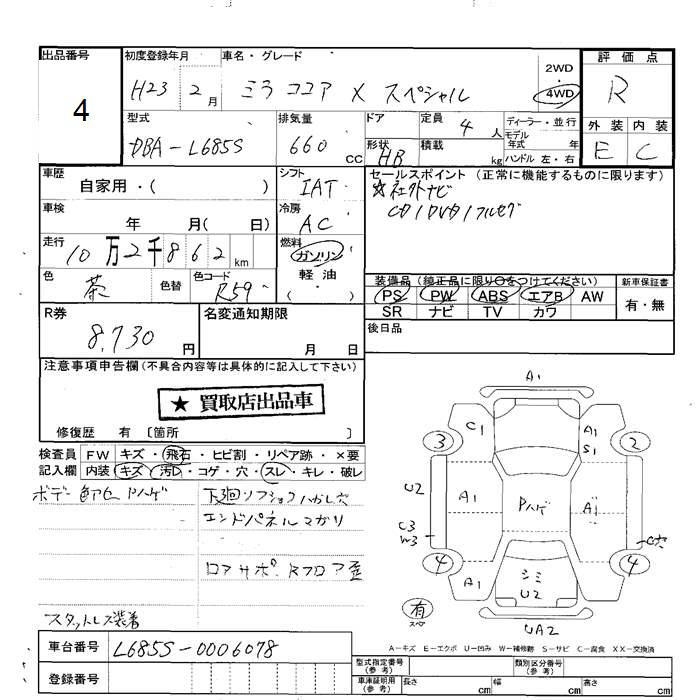 出品番号
4
初度登録年月
H23 2月
車名・グレード
ミラ ココア X スペシャル
2WD
4WD
評価点
R
型式
DBA-L685S
排気量
660 CC
ドア
形状
HB
定員
4 人
積載
kg
ディーラー・並行
モデル年式 年
ハンドル 左・右
外装 内装
E C
車歴
自家用・( )
シフト
IAT
セールスポイント (正常に機能するものに限ります)
☆社外ナビ
CD/DVD/フルセグ
車検
年 月( 日)
冷房
AC
走行
10万2千862km
燃料
ガソリン
軽油
( ・ )
色
茶
色替
色コード
R59
装備品 (純正品に限り○をつけてください)
PS PW ABS エアB AW
SR ナビ TV カワ
新車保証書
有・無
R券
8,730 円
名変通知期限
月 日
後日品
注意事項申告欄(不具合内容等は具体的に記入して下さい)
★ 買取店出品車
修復歴 有 〔箇所 〕
検査員記入欄
FW キズ・飛石・ヒビ割・リペア跡・×要
内装 キズ・汚れ・コゲ・穴・スレ・キレ・破レ
ボデー 色アセ Pハゲ
下廻リソフショクハがし穴
エンドパネルマガリ
ロアサポ.Rフロア歪
スタットレス装着
A1
C1
A1
S1
3
2
U2
A1
Pハゲ
A1
C3
W3
C穴
4
4
A1
シミ
U2
有
スペア
UA2
A−キズ E−エクボ U−凹み W−補修跡 S−サビ C−腐食 XX−交換済
車台番号
L685S-0006078
登録番号
型式指定番号(参考)
類別区分番号(参考)
車庫証明用(参考)
長さ cm
幅 cm
高さ cm